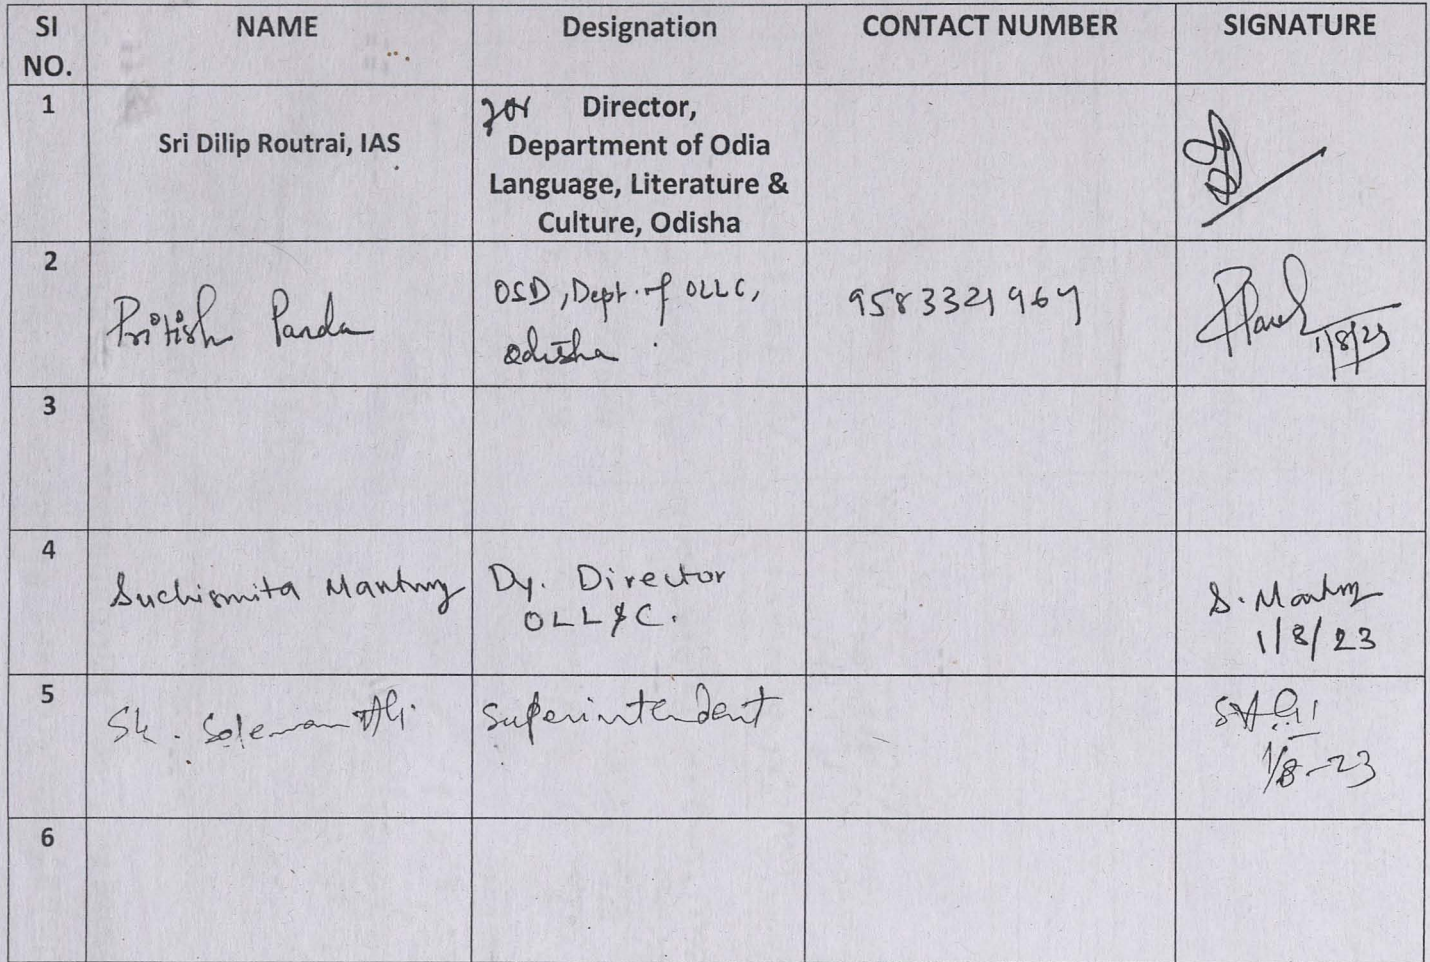 SI NO. NAME Designation CONTACT NUMBER SIGNATURE
1 Sri Dilip Routrai, IAS for Director,
Department of Odia
Language, Literature &
Culture, Odisha
2 Pritish Panda OSD, Dept. of OLLC, 9583321967
Odisha 1/8/23
3
4 Suchismita Mantry Dy. Director S. Mantry
OLL&C. 1/8/23
5 Sk. Soleman Ali Superintendent SKAli
1/8-23
6